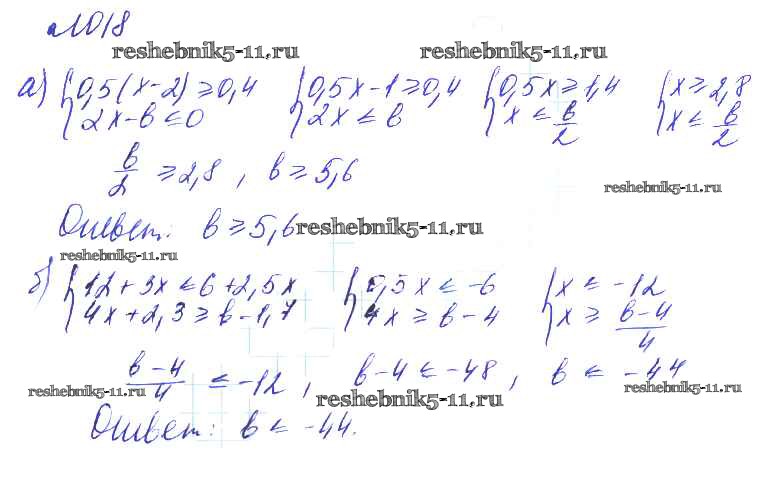 №1018
reshebnik5-11.ru reshebnik5-11.ru
а) {0,5(x-2) ≥ 0,4 {0,5x-1 ≥ 0,4 {0,5x ≥ 1,4 {x ≥ 2,8
2x-в ≤ 0 2x ≤ в x ≤ в/2 x ≤ в/2
в/2 ≥ 2,8 , в ≥ 5,6
reshebnik5-11.ru
Ответ: в ≥ 5,6 reshebnik5-11.ru
reshebnik5-11.ru
б) {12+3x ≤ 6+2,5x {0,5x ≤ -6 {x ≤ -12
4x+2,3 ≥ в-1,7 4x ≥ в-4 x ≥ (в-4)/4
(в-4)/4 ≤ -12 , в-4 ≤ -48 , в ≤ -44
reshebnik5-11.ru reshebnik5-11.ru reshebnik5-11.ru
Ответ: в ≤ -44.